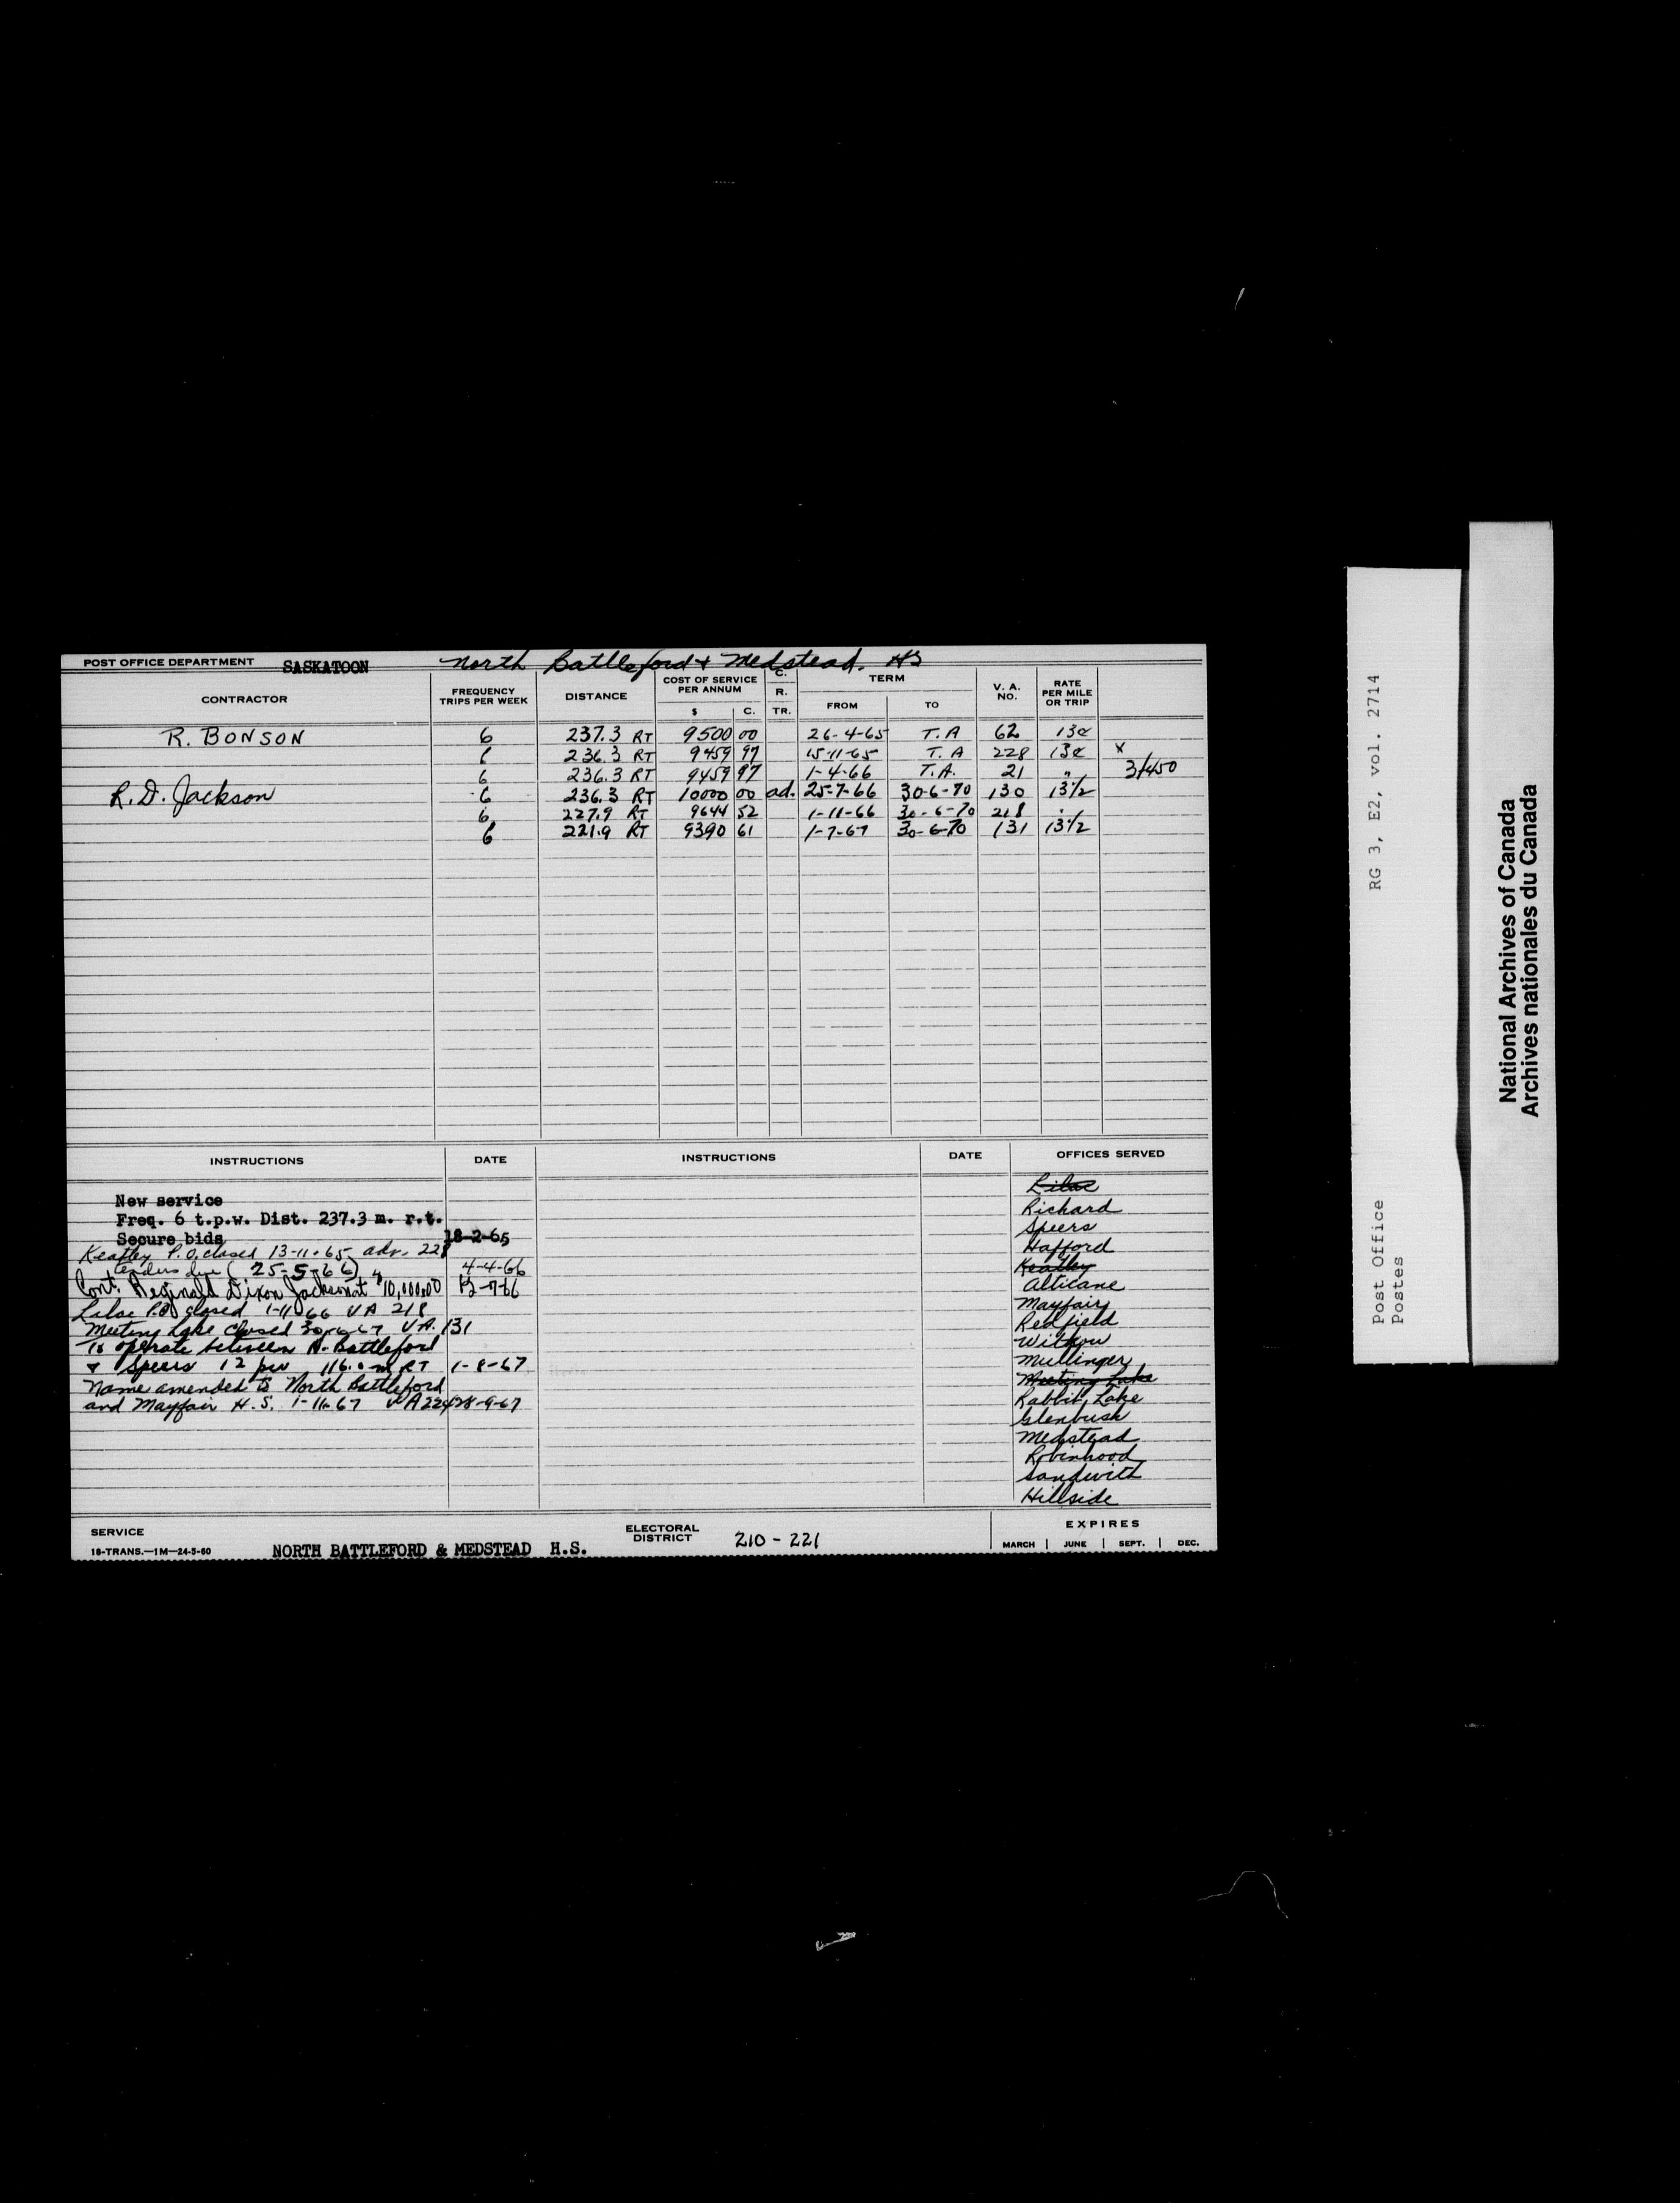 POST OFFICE DEPARTMENT SASKATOON North Battleford & Medstead. HS
CONTRACTOR FREQUENCY TRIPS PER WEEK DISTANCE COST OF SERVICE PER ANNUM $ C. C. R. TR. TERM FROM TO V. A. NO. RATE PER MILE OR TRIP
R. BONSON 6 237.3 RT 9500 00 26-4-65 T.A 62 13¢
6 236.3 RT 9459 97 15-11-65 T.A 228 13¢ x
6 236.3 RT 9459 97 1-4-66 T.A. 21 " 31450
R.D. Jackson 6 236.3 RT 10000 00 ad. 25-7-66 30-6-70 130 13½
6 227.9 RT 9644 52 1-11-66 30-6-70 218 "
6 221.9 RT 9390 61 1-7-67 30-6-70 131 13½
INSTRUCTIONS DATE INSTRUCTIONS DATE OFFICES SERVED
New service
Freq. 6 t.p.w. Dist. 237.3 m. r.t.
Secure bids 18-2-65
Keatley P.O. closed 13-11-65 adv. 228
tenders due (25-5-66) 4-4-66
Cont. Reginald Dixon Jackson at $10,000.00 12-7-66
Lilac P.O closed 1-11-66 V A 218
Meeting Lake closed 30-6-67 V.A. 131
To operate between N. Battleford
& Speers 12 pw 116.0 m RT 1-8-67
Name amended to North Battleford
and Mayfair H.S. 1-11-67 V A 224 28-9-67
Lilac
Richard
Speers
Hafford
Keatley
Alticane
Mayfair
Redfield
Witkow
Mullinger
Meeting Lake
Rabbit Lake
Glenbush
Medstead
Robinhood
Sandwith
Hillside
SERVICE
18-TRANS.—1M—24-5-60 NORTH BATTLEFORD & MEDSTEAD H.S. ELECTORAL DISTRICT 210-221 EXPIRES
MARCH JUNE SEPT. DEC.
Post Office RG 3, E2, vol. 2714
Postes
National Archives of Canada
Archives nationales du Canada